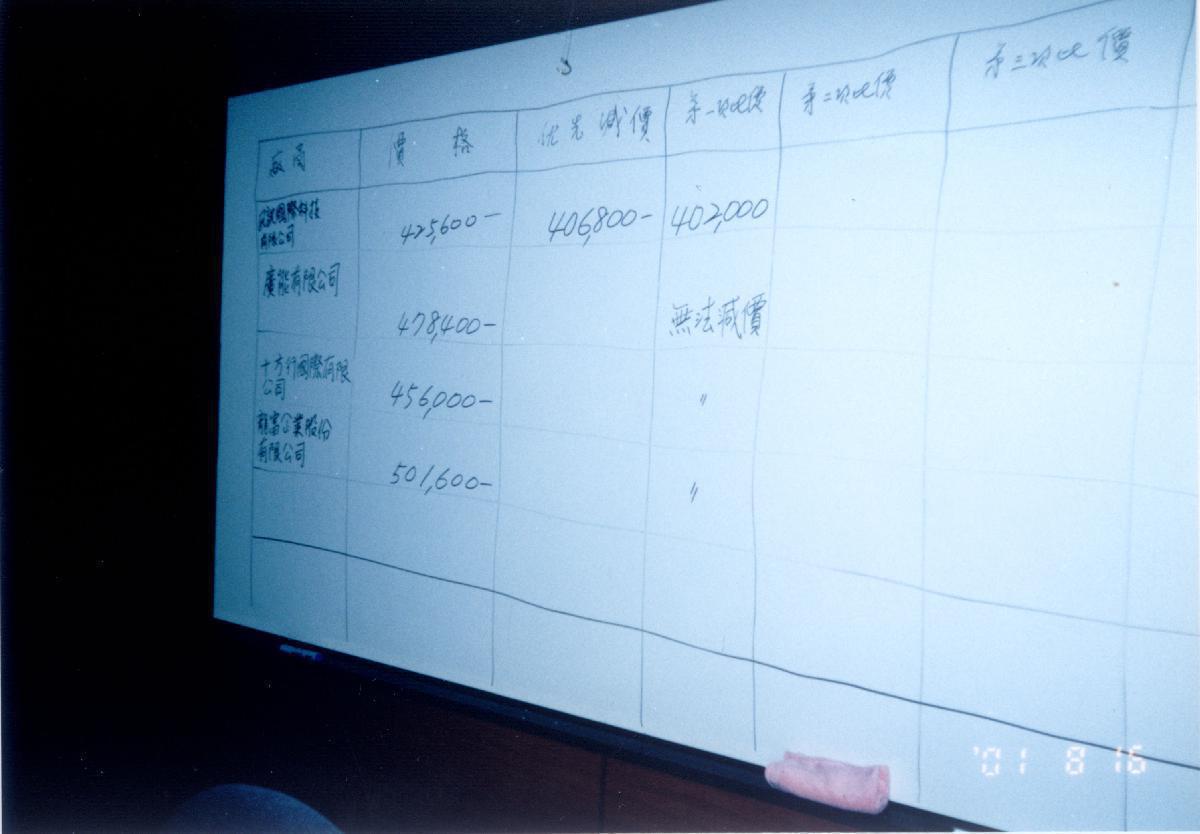 廠商 價格 优先減價 第一次比價 第二次比價 第三次比價
國際科技
有限公司 425,600- 406,800- 402,000
廣能有限公司
478,400- 無法減價
十方行國際有限
公司 456,000- 〃
富企業股份
有限公司
501,600- 〃
'01 8 16